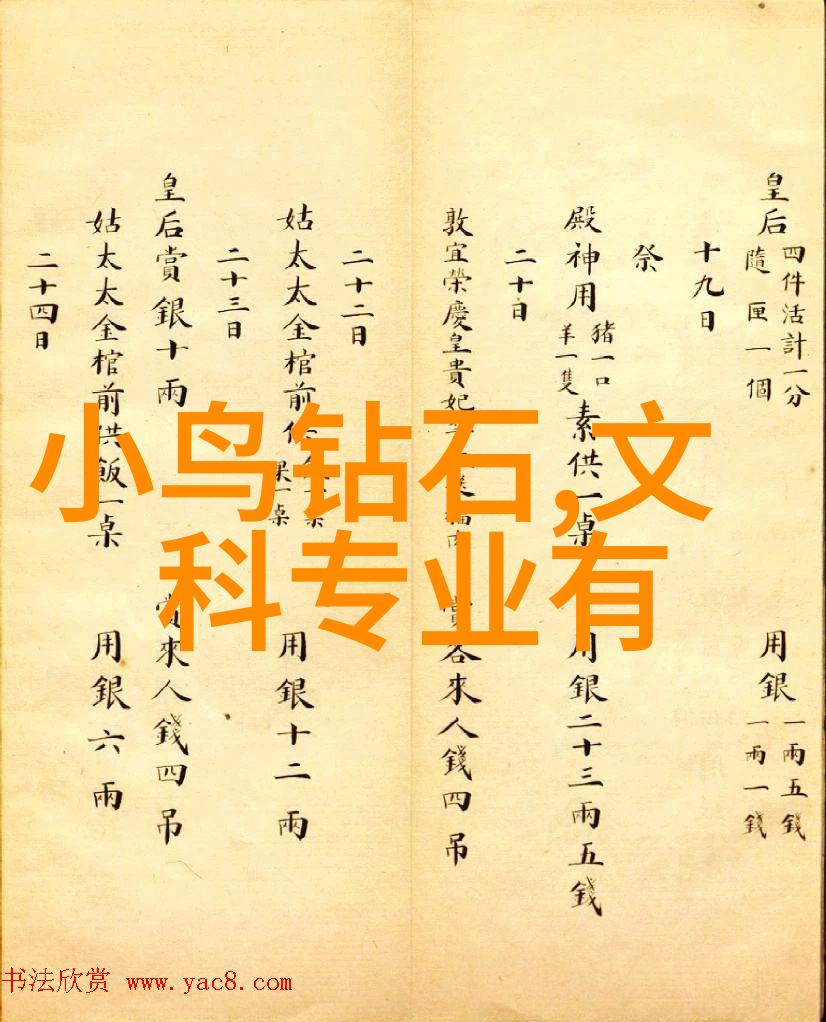 皇后 四件活計一分 隨匣一個 用銀 一兩五錢 一兩一錢
十九日
祭
殿神用 猪一口 羊一隻 素供一桌 用銀二十三兩五錢
二十日
敦宜榮慶皇貴妃 賞各來人錢四吊
二十二日
姑太太金棺前供 桌 菓一桌 用銀十二兩
二十三日
皇后賞銀十兩 賞來人錢四吊
姑太太金棺前供飯一桌 用銀六兩
二十四日
小鸟钻石,文
科专业有
书法欣赏 www.yac8.com